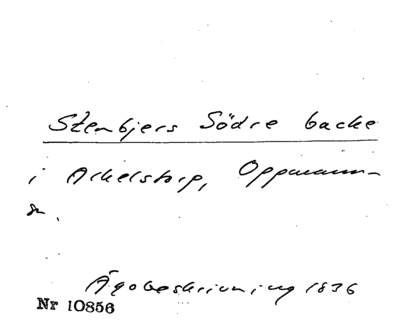 Stenbjers Södre backe
i Arkelstorp, Oppmann-
sn.
Ägobeskrivning 1836
Nr 10856